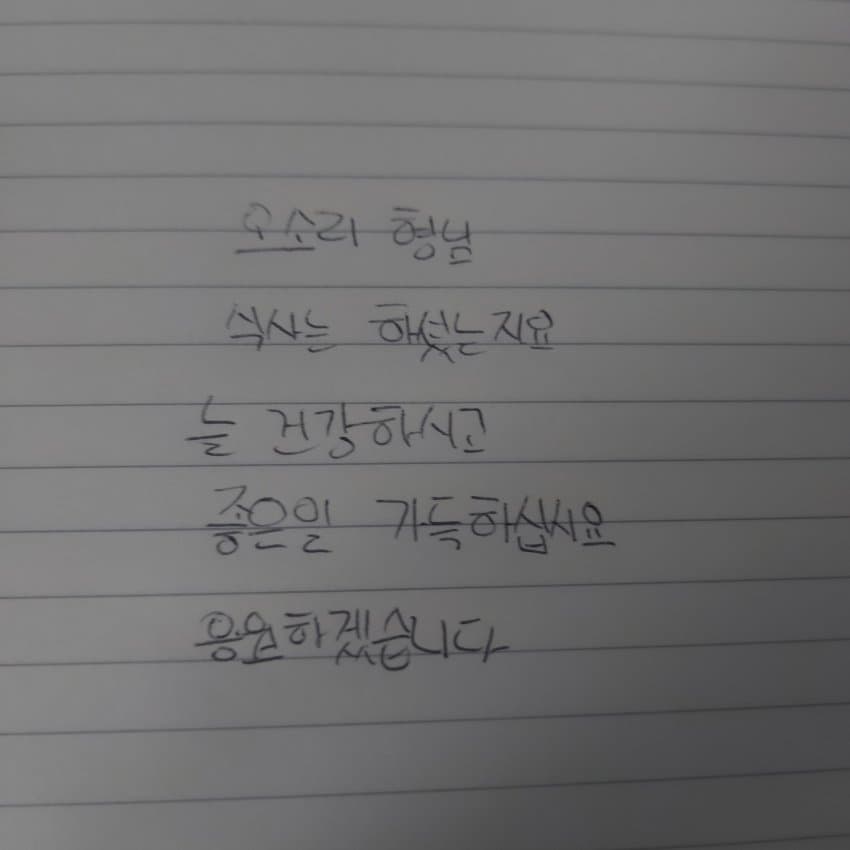 오소리 형님
식사는 하셨는지요
늘 건강하시고
좋은일 가득하십시요
응원하겠습니다